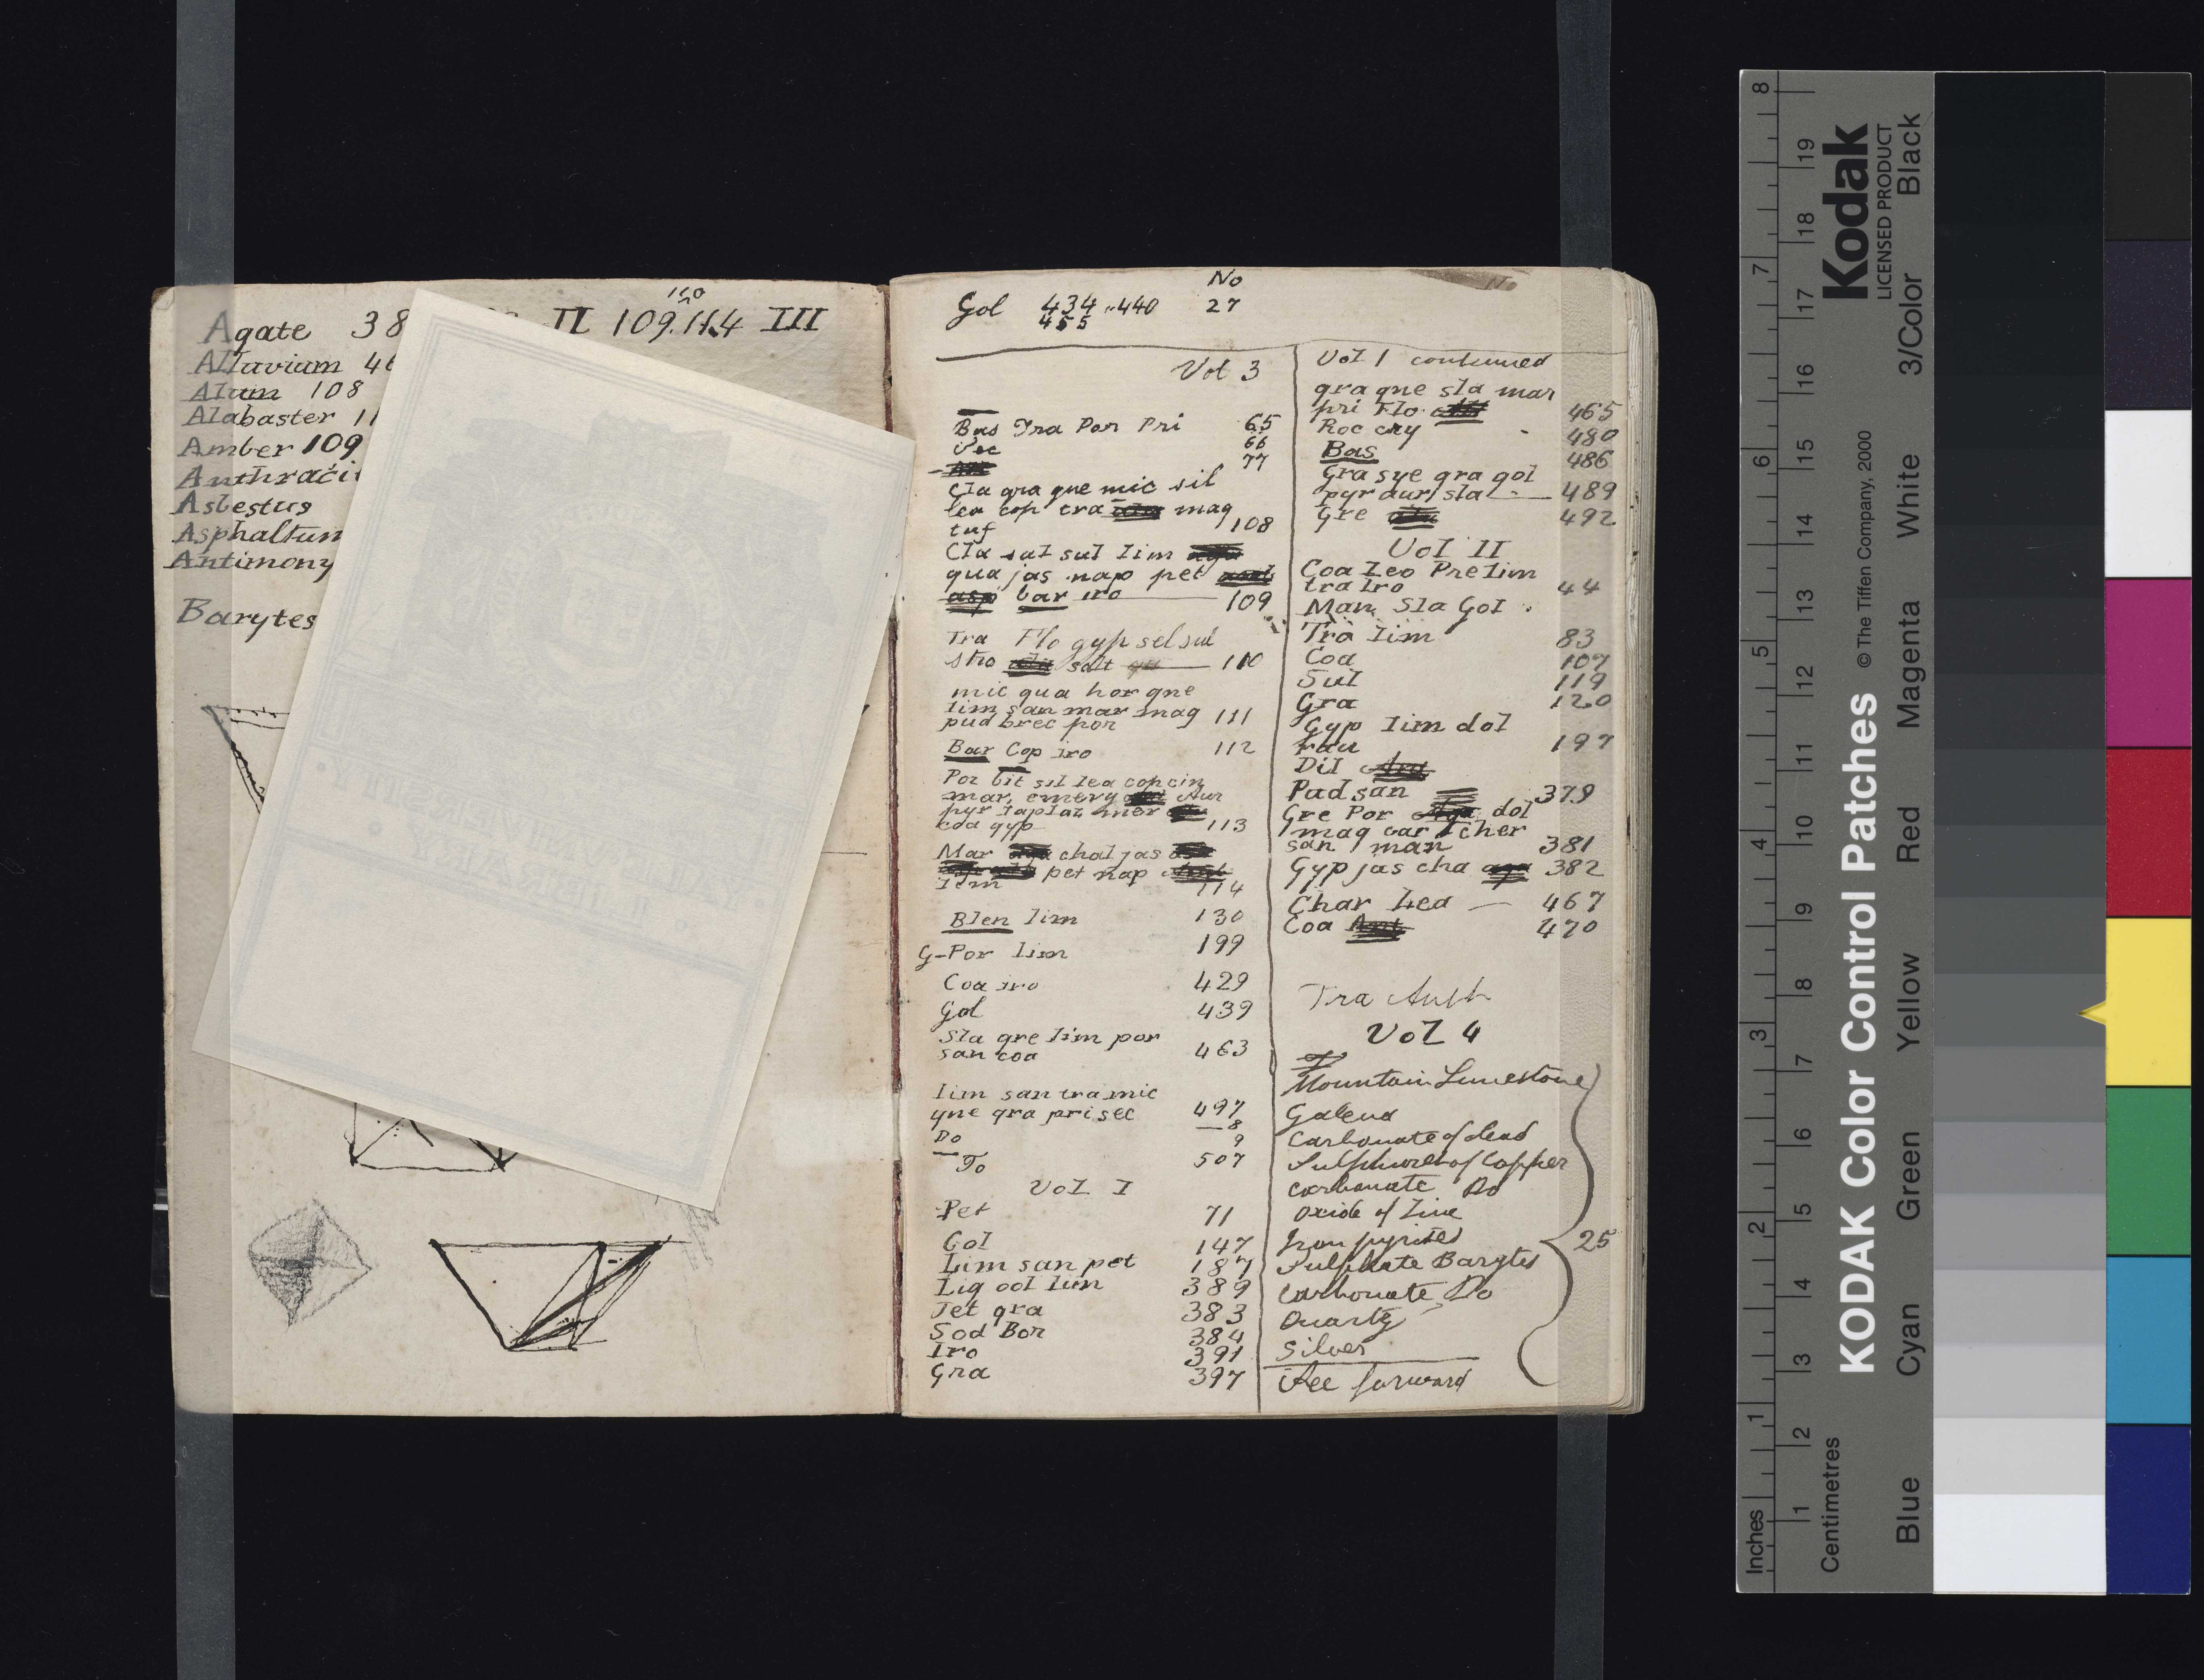 Agate 38
II 109.114 III
110
Alluvium 46
Alum 108
Alabaster 11
Amber 109
Anthraci
Asbestus
Asphaltum
Antimony
Barytes
No
Gol 434..440 27
455
Vol 3
Bas Tra Por Pri 65
Sec 66
77
Cla gra gne mic sil
lea cop tra mag
tuf 108
Cla sal sul lim
qua jas nap pet
asp bar iro 109
Tra Flo gyp sel sul
stro salt 110
mic qua hor gne
lim san mar mag
pud brec por 111
Bar Cop iro 112
Por bit sil lea cop cin
mar, emery Aur
pyr lap laz mer
coa gyp 113
Mar chal jas
pet nap
lim 114
Blen lim 130
G-Por lim 199
Coa iro 429
Gol 439
Sla gre lim por
san coa 463
lim san tra mic
gne gra pri sec 497
8
Do 9
To 507
Vol I
Pet 71
Gol 147
Lim san pet 187
Lig ool lim 389
Jet gra 383
Sod Bor 384
Iro 391
Gra 397
Vol I continued
gra gne sla mar
pri Flo 465
Roc cry 480
Bas 486
Gra sye gra gol
pyr aur sla 489
Gre 492
Vol II
Coa Leo Pre lim
tra iro 44
Man Sla Gol
Tra lim 83
Coa 107
Sul 119
Gra 120
Gyp lim dol
197
Dil
Pud san 379
Gre Por dol
mag car cher
san man 381
Gyp jas cha aga 382
Char Lea 467
Coa Ant 470
Tra Anth
Vol 4
Mountain Limestone
Galena
Carbonate of Lead
Sulphuret of Copper
carbonate Do
oxide of Zinc
Iron pyrites 25
Sulphate Barytes
Carbonate Do
Quartz
Silver
See forward
KODAK Color Control Patches
© The Tiffen Company, 2000
Kodak
LICENSED PRODUCT
Blue Cyan Green Yellow Red Magenta White 3/Color Black
Inches 1 2 3 4 5 6 7 8
Centimetres 1 2 3 4 5 6 7 8 9 10 11 12 13 14 15 16 17 18 19